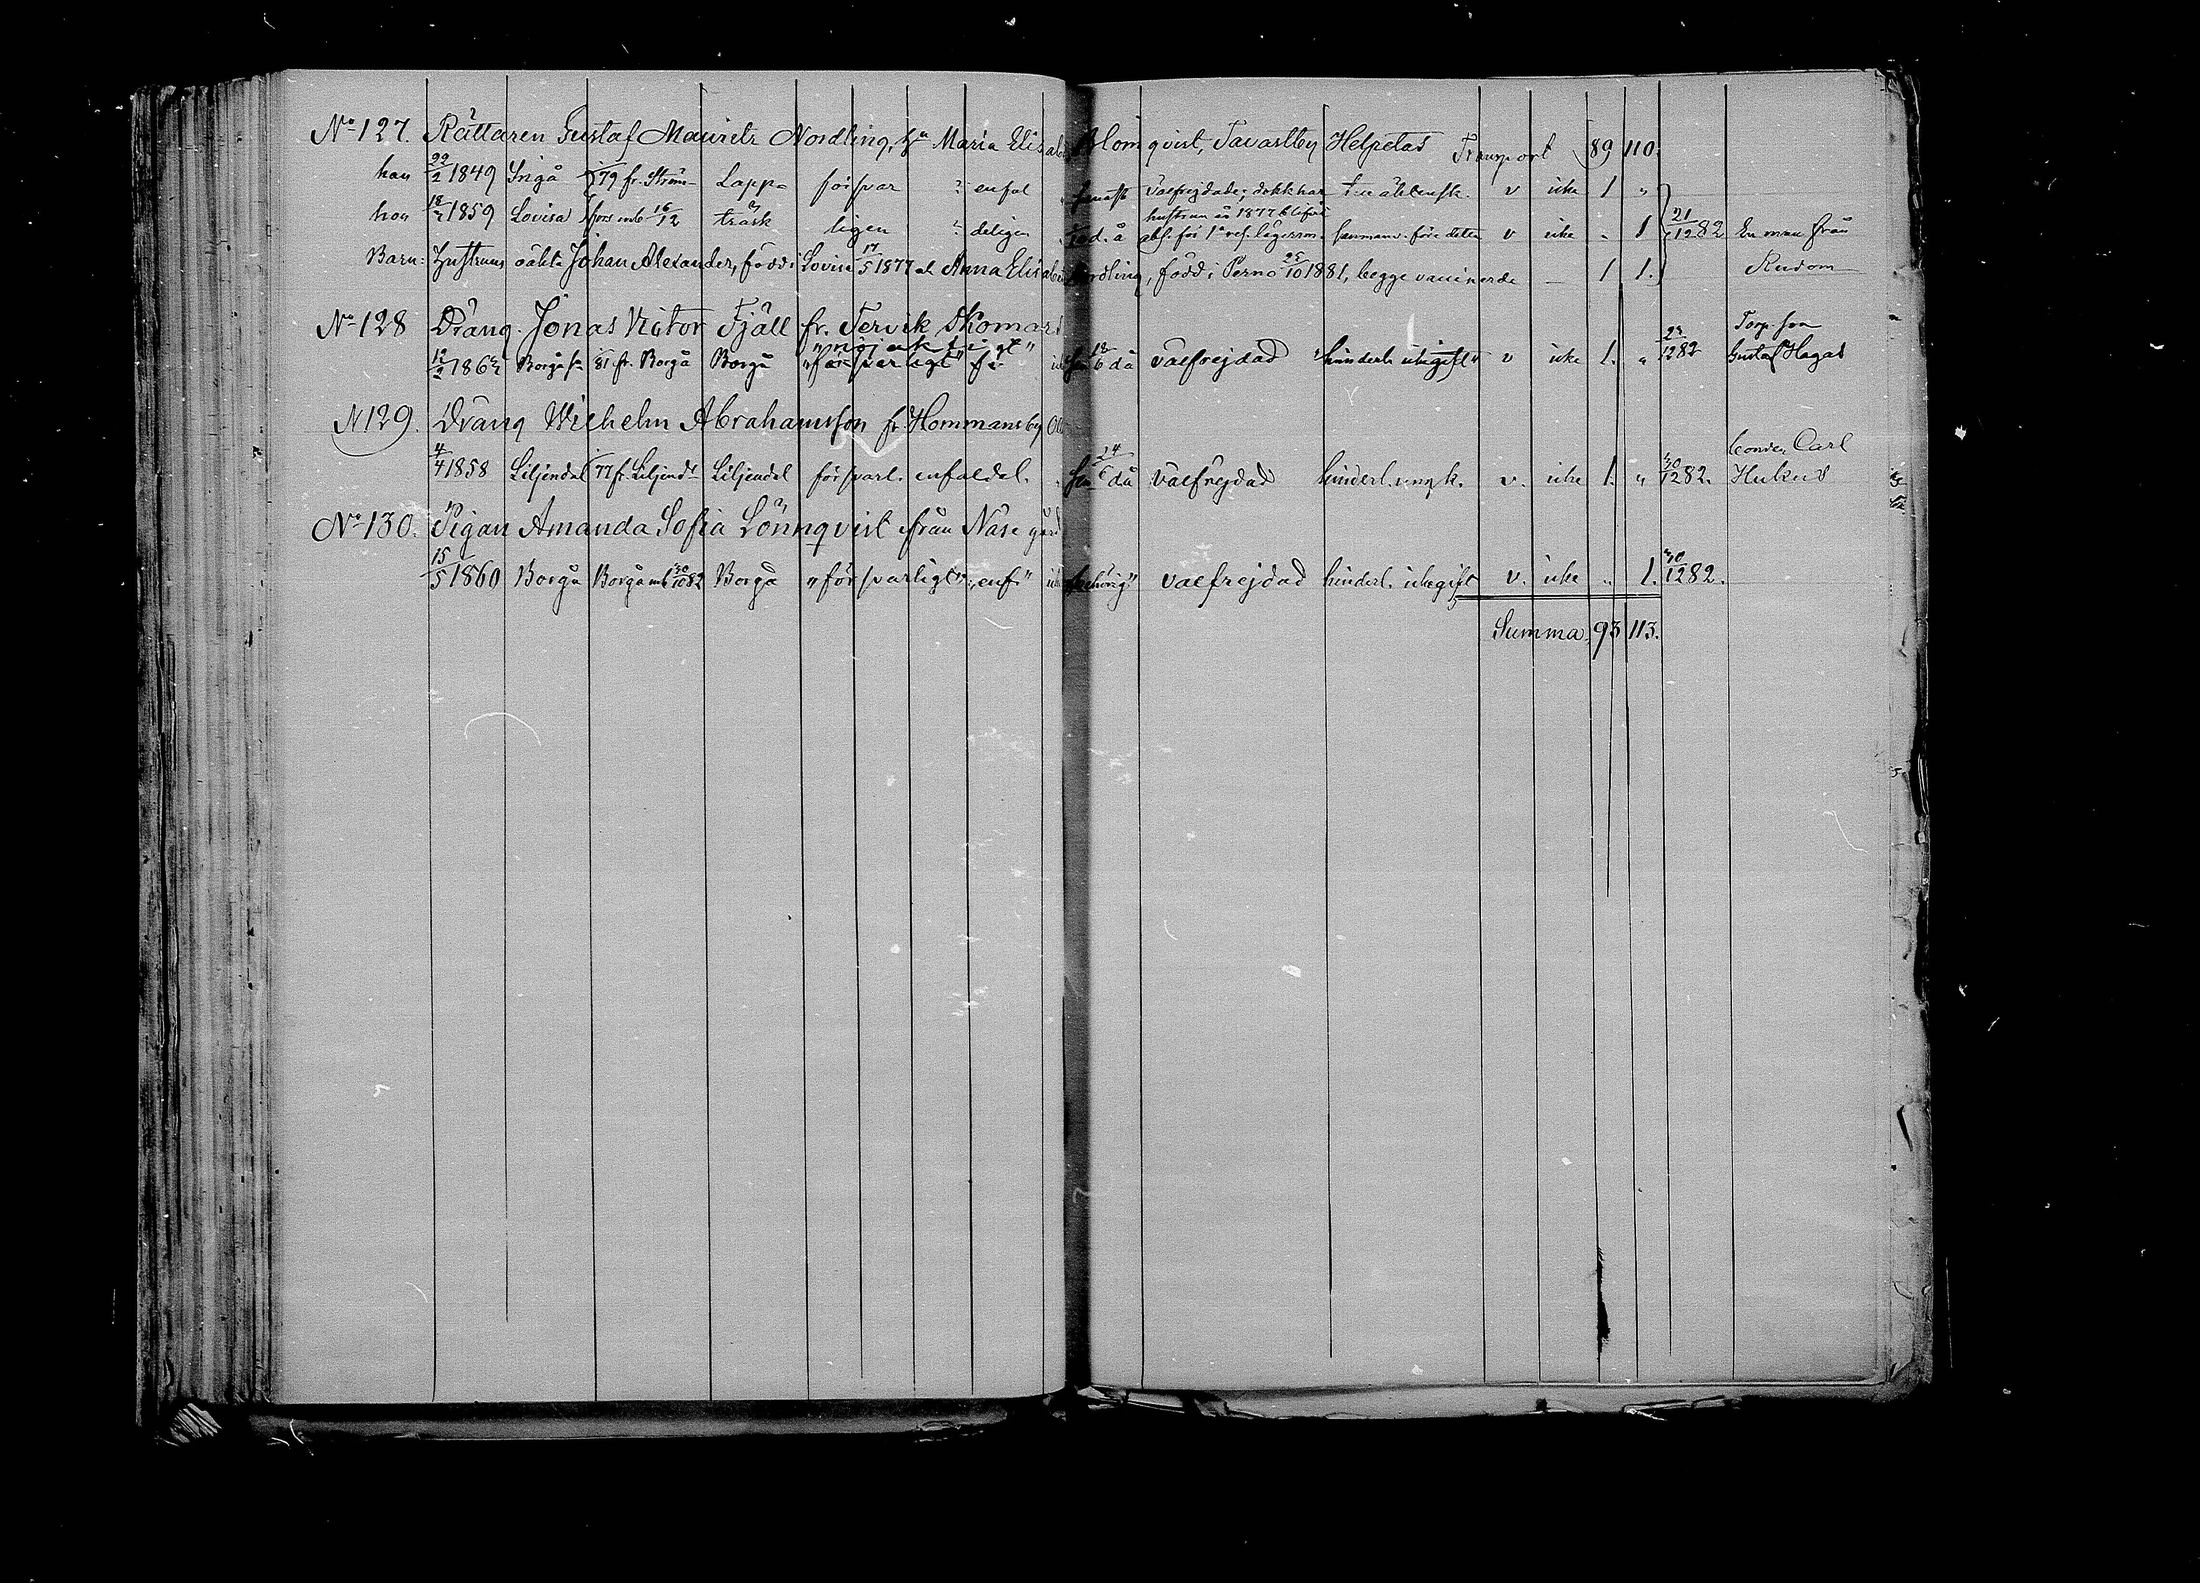 No 127. Rättaren Gustaf Mauritz Nordling, Hu Maria Elisabeth Blomqvist, Tavastby Helpetas Transport 89 110.
han 22/2 1849 Ingå 79 fr. Ström- Lapp- försvar ? enfal senast välfrejdade; dock har v icke 1 "
hustrun år 1877 blifvit
hon 18/ 1859 Lovisa 16/12 träsk ligen ? deligen d. å abs. för 1a res. lägersm. före detta v icke " 1 21/12 82 En man från
Barn: Hustruns oäkta Johan Alexander, född i Lovisa 17/5 1877 och Anna Elisabeth Nordling, född i Perno 25/10 1881, begge vaccinerde — 1 1. Rudom
No 128 Dräng Jonas Victor Fjäll fr. Tervik Skomars Torp
"nöjaktigt"
12/2 1862 Borgå sn 81 fr. Borgå Borgå "försvarligt" 18/6 då välfrejdad hinderl. icke gift" v icke 1. " 23/12 82 Gustaf Hagas
N 129. Dräng Wilhelm Abrahamsson fr Hommansby
bonden Carl
4/4 1858 Liljendal 77 fr. Liljendl Liljendal försvarl. enfaldel. 24/6 då välfrejdad hinderl. ungk. v. icke 1. " 30/12 82. Hukus
No 130. Pigan Amanda Sofia Lönnqvist från Näse gård
15/5 1860 Borgå Borgå mb 30/10 82 Borgå "försvarligt"; "enf." behörig" välfrejdad hinderl. icke gift v. icke " 1. 30/12 82.
Summa 93 113.